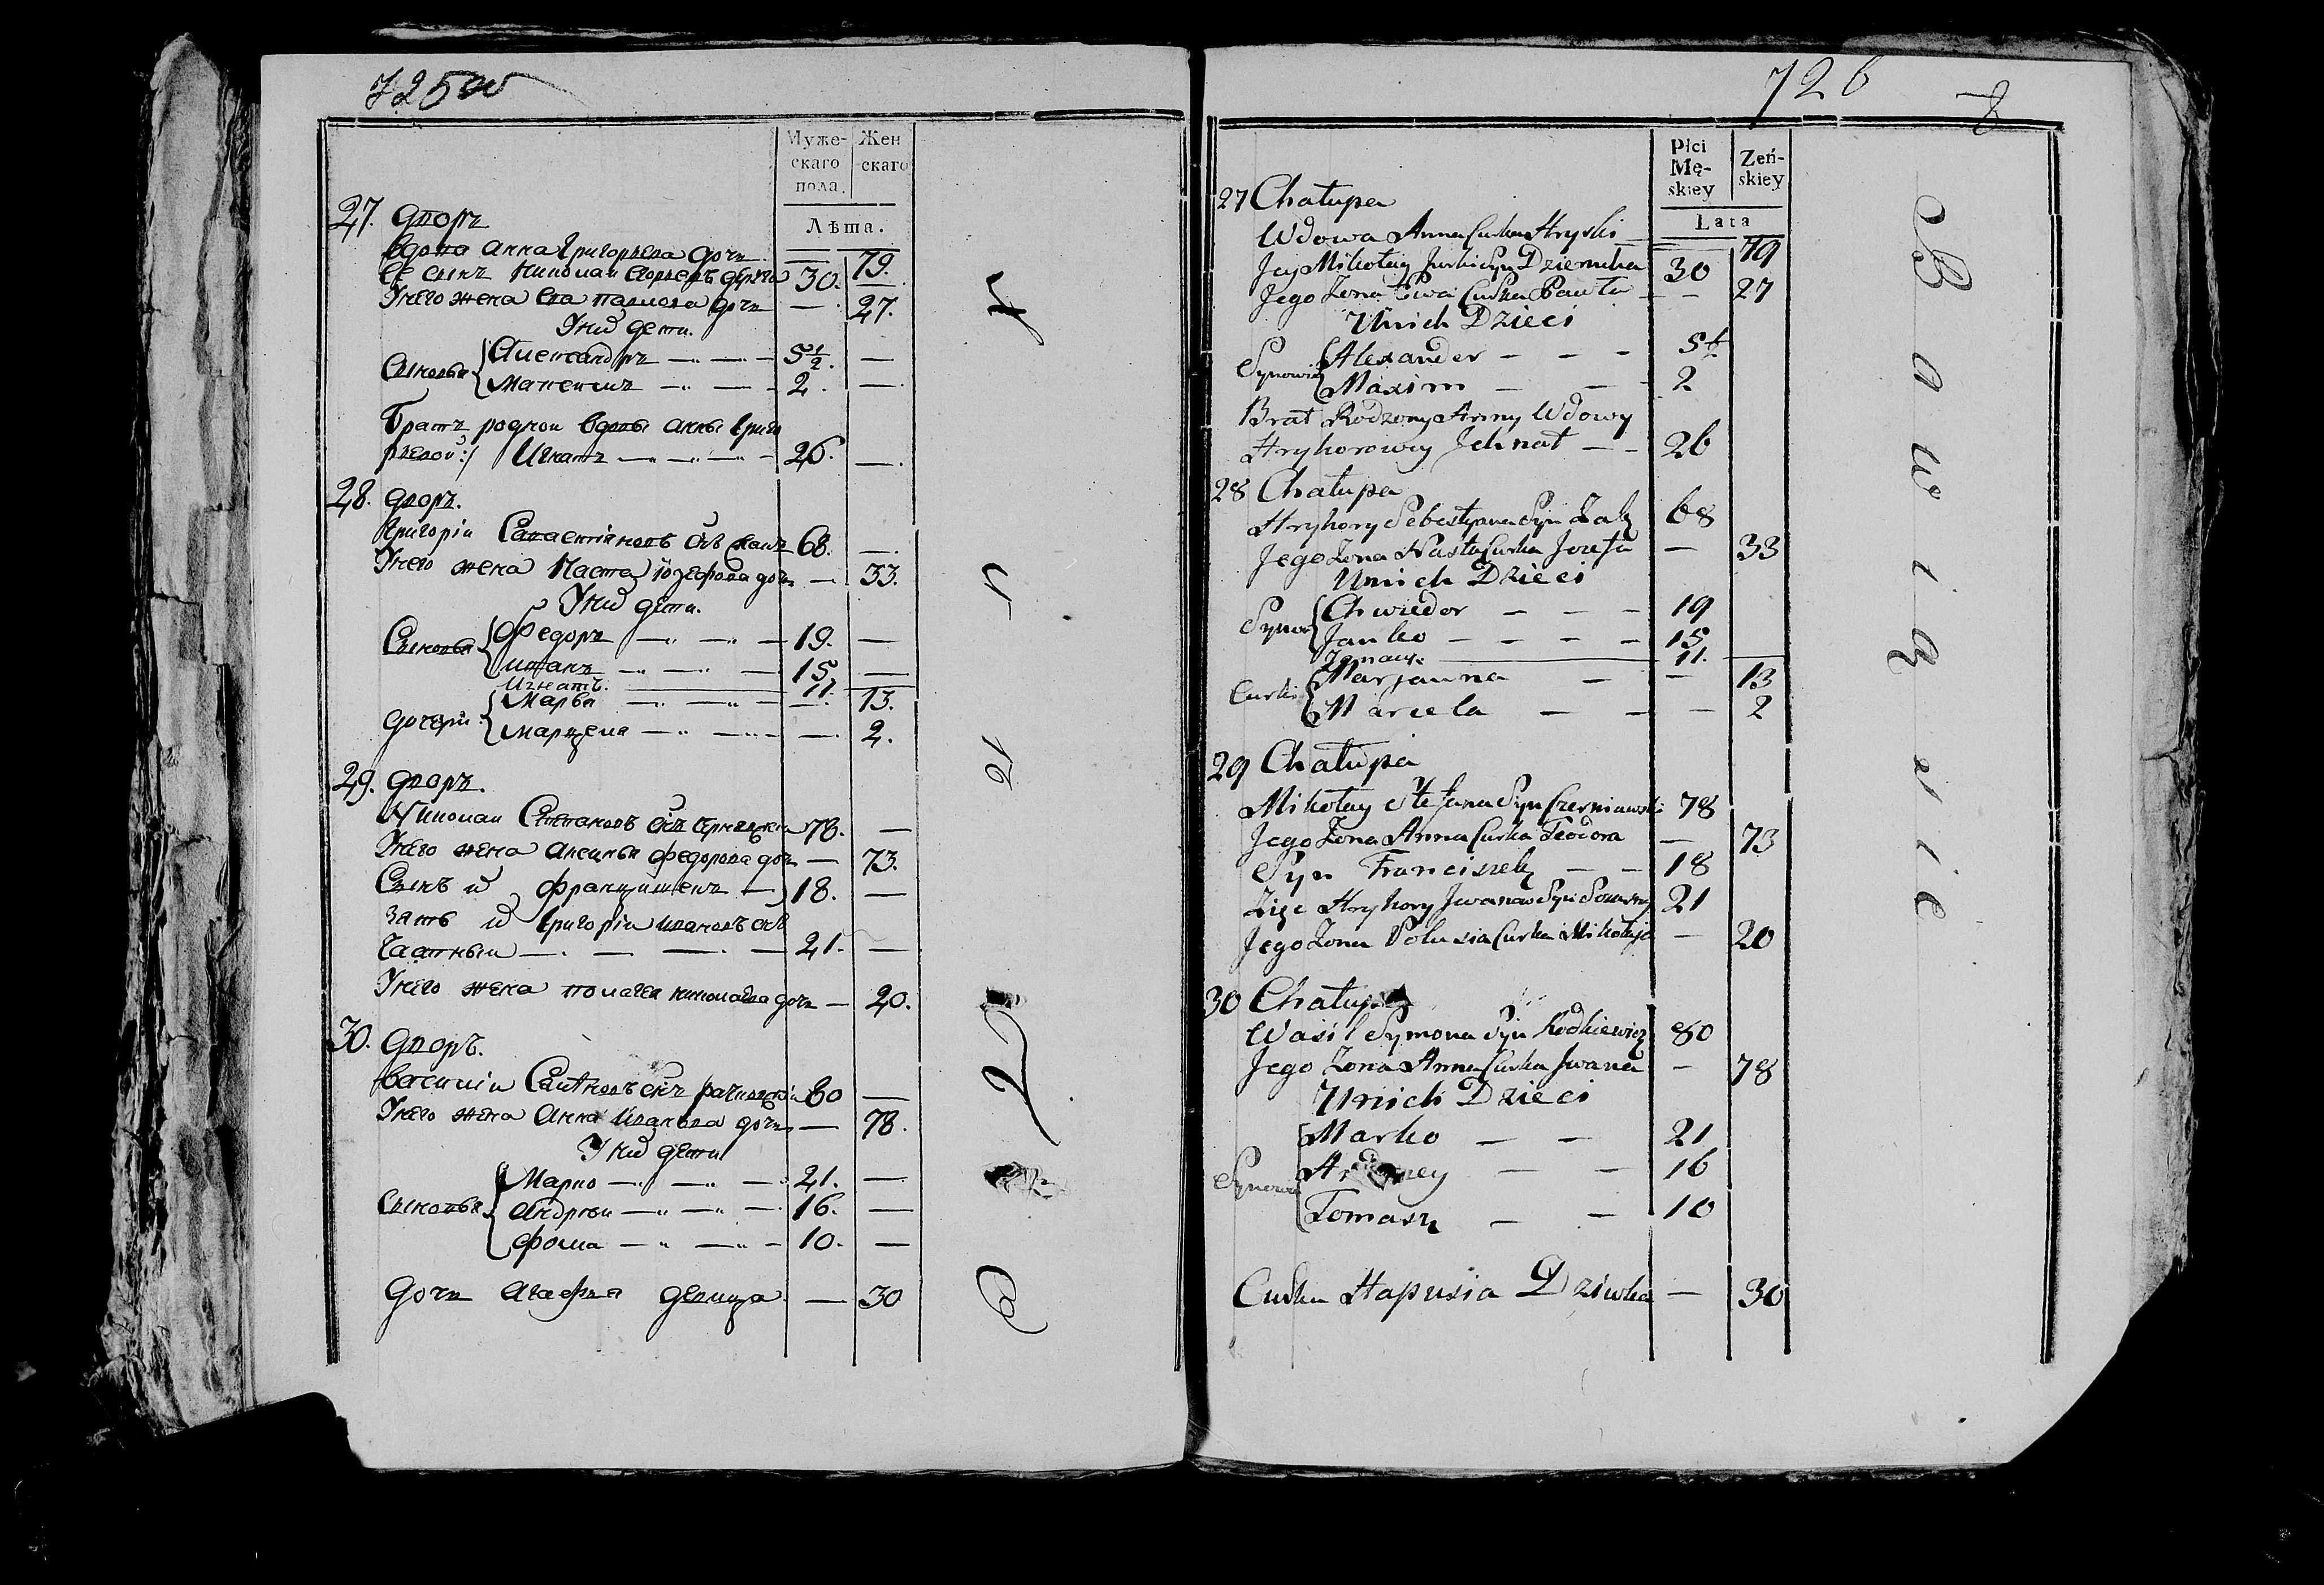 725 об
Муже-
скаго
пола.
Жен
скаго
Лѣта.
27. Дворъ
Вдова Анна Григорьева дочь — 79.
Ее сынъ Николай 30. —
У него жена Ева Павлова дочь — 27.
У них дети.
Сыновья Александръ — 5½. —
Максимъ — 2. —
Братъ родной вдовы Анны Григо
рьевой :/ Игнатъ — 26. —
28. Дворъ.
Григорій Савастіановъ сн̃ъ 68. —
У него жена Наста Іозефова дочь — 33.
У них дети.
Сыновья Федоръ — 19. —
Иванъ — 15 —
Игнатъ. 11.
Дочери Марья — 13.
Марцела — 2.
29. Дворъ.
Николай Степановъ сн̃ъ 78. —
У него жена Федорова дочь — 73.
Сынъ и Францишекъ — 18. —
Зять и Григорій Ивановъ сн̃ъ
21. —
У него жена Николаева дочь — 20.
30. Дворъ.
Василій сн̃ъ 80 —
У него жена Анна Иванова дочь — 78.
У них дети
Сыновья Марко — 21. —
Андрей — 16. —
Фома — 10. —
Дочь Агафья девица — 30
726
Płci
Mę-
skiey
Zeń-
skiey
Lata
27 Chałupa
Wdowa Anna Curka Hryśki — 79
Jey Mikołay Jurki Syn 30
Jego Żona Ewa Curka Pawła — 27
U nich Dzieci
Synowie Alexander — 5½
Maxim — 2
Brat Rodzony Anny Wdowy
Hryhorowey Jchnat — 26
28 Chałupa
Hryhory Sebestyana Syn 68
Jego Żona Nasta Curka Jozefa — 33
U nich Dzieci
Synow Chwiedor — 19
Janko — 15
11.
Curki Marjanna — 13
Marcela — 2
29 Chałupa
Mikołay Stefana Syn Czerniawski 78
Jego Żona Anna Curka Teodora — 73
Syn Franciszek — 18
Zięć Hryhory Jwanow Syn 21
Jego Żona Polusia Curka Mikołaja — 20
30 Chałupa
Wasil Symona Syn 80
Jego Żona Anna Curka Jwana — 78
U nich Dzieci
Synowie Marko — 21
16
Tomasz — 10
Curka Hapusia Dziwka — 30